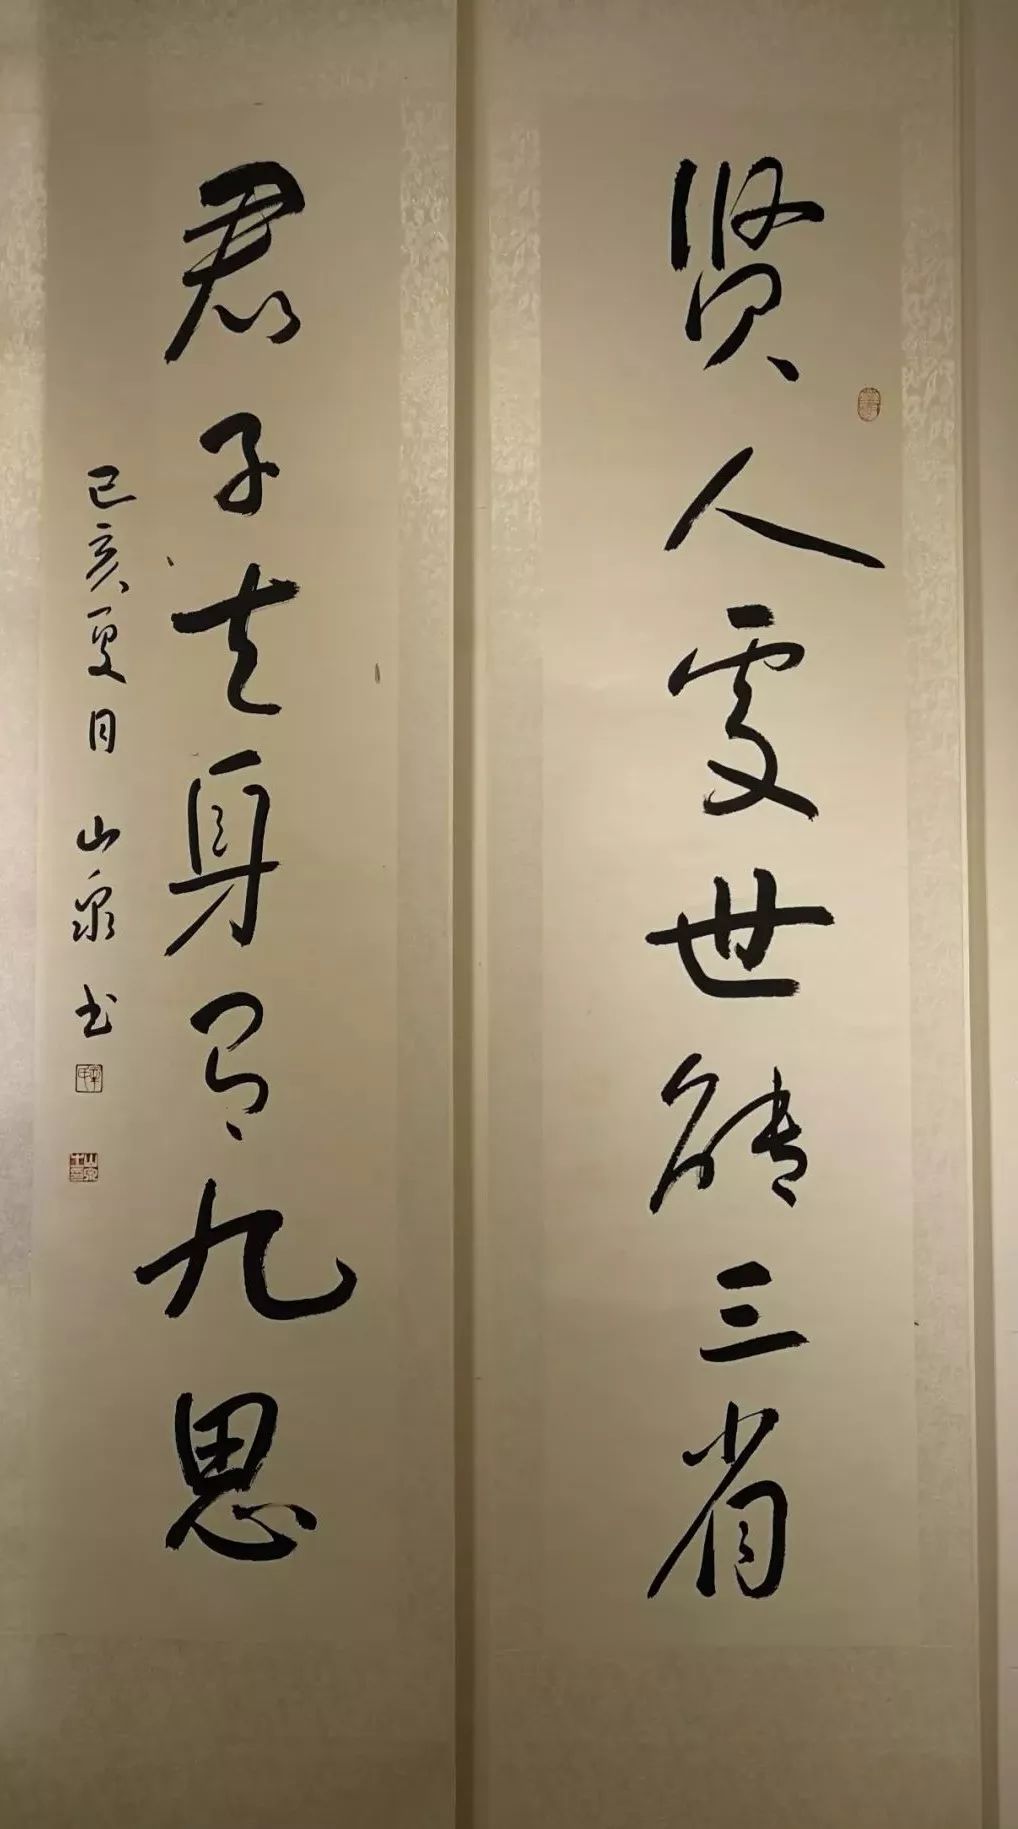 贤人处世能三省
君子立身有九思
己亥夏月 山泉书